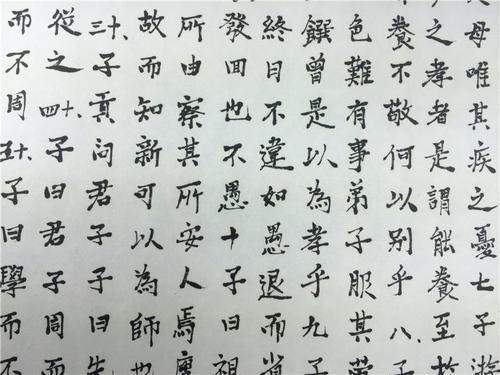 父母唯其疾之憂七子游
之孝者是謂能養至於
養不敬何以別乎八子
色難有事弟子服其勞
饌曾是以為孝乎九子
終日不違如愚退而省
發回也不愚十子曰視
所由察其所安人焉廋
故而知新可以為師也
三十、子貢問君子子曰先
從之四十、子曰君子周而
而不周五十、子曰學而不